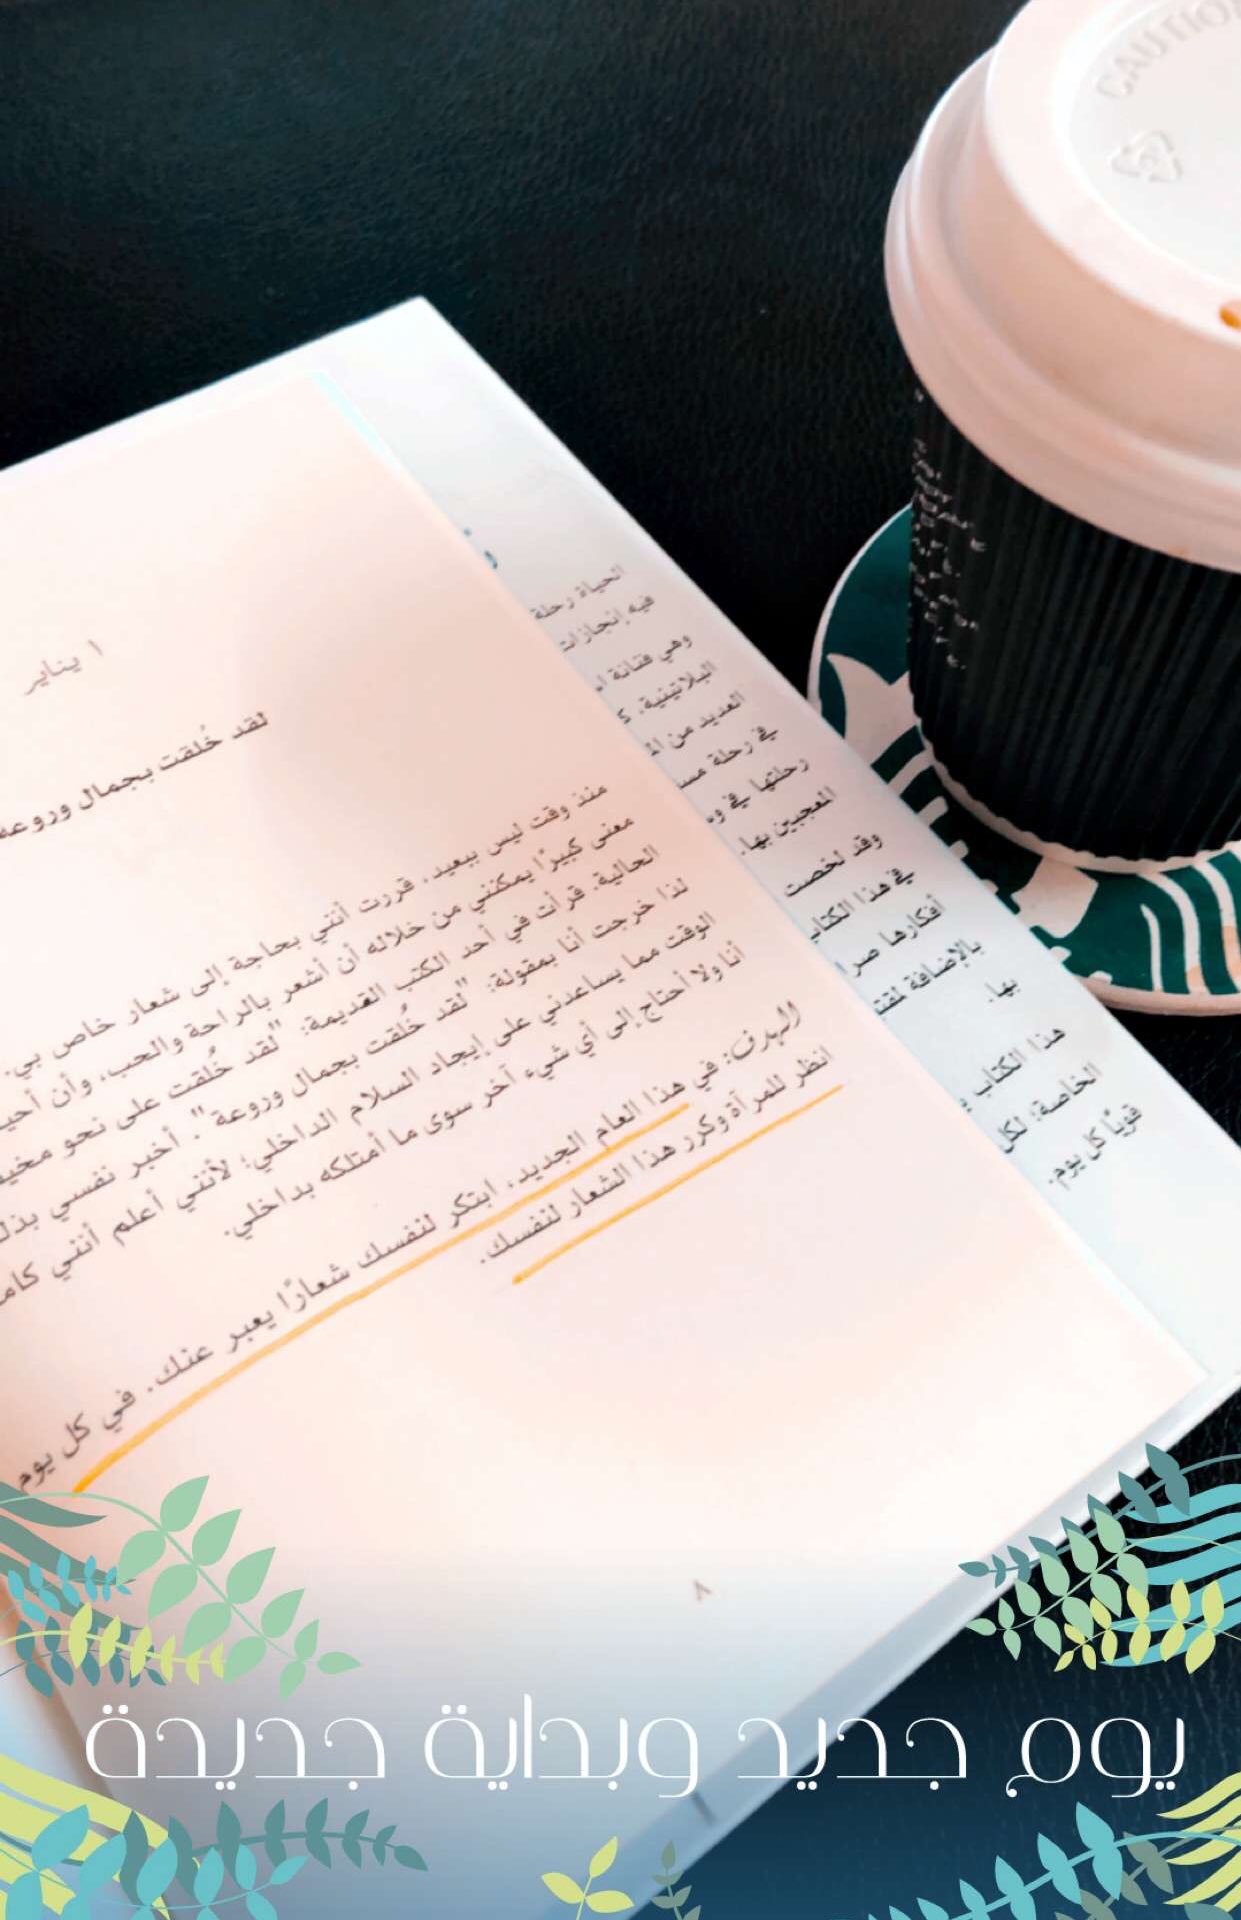 ١ يناير
لقد خُلقت بجمال وروعة
منذ وقت ليس ببعيد، قررت أنني بحاجة إلى شعار خاص بي.
معنى كبيرًا يمكنني من خلاله أن أشعر بالراحة والحب، وأن
الحالية. قرأت في أحد الكتب القديمة: "لقد خُلقت على نحو
لذا خرجت أنا بمقولة: "لقد خُلقت بجمال وروعة". أخبر نفسي
الوقت مما يساعدني على إيجاد السلام الداخلي؛ لأنني أعلم أنني
أنا ولا أحتاج إلى أي شيء آخر سوى ما أمتلكه بداخلي.
الهدف: في هذا العام الجديد، ابتكر لنفسك شعارًا يعبر عنك. في كل يوم
انظر للمرآة وكرر هذا الشعار لنفسك.
٨
الحياة رحلة
فيه إنجازات
وهي فنانة
البلاتينية.
العديد من
في رحلة
رحلتها في
المعجبين بها.
وقد لخصت
في هذا الكتاب
أفكارها
بالإضافة
بها.
هذا الكتاب
الخاصة؛ لكل
قويًا كل يوم.
CAUTION
يوم جديد وبداية جديدة